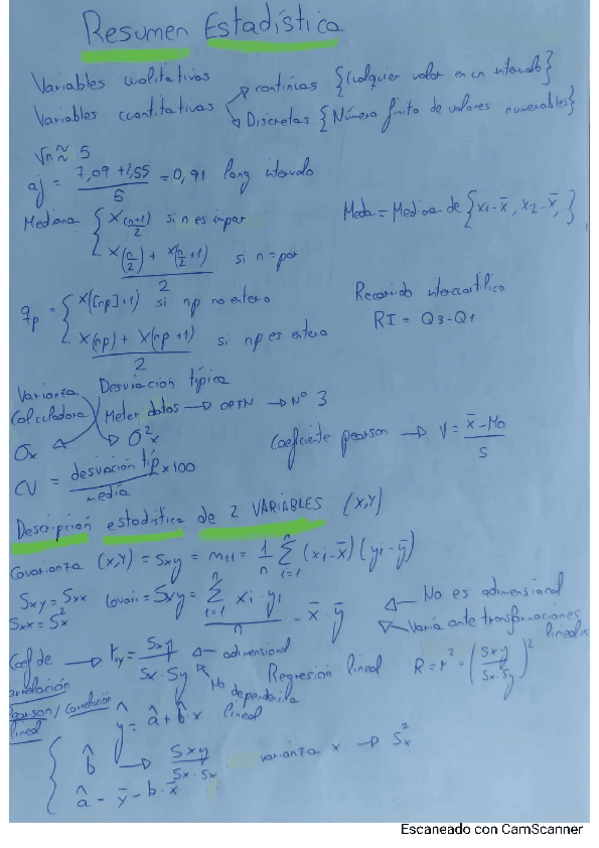 Resumen Estadística
Variables cualitativas
Variables cuantitativas → continúas {Cualquier valor en un intervalo}
→ Discretas {Número finito de valores numerables}
√n ≈ 5
aj = (7,09 + 2,55) / 5 = 0,91 long intervalo
Mediana { x((n+1)/2) si n es impar
(x(n/2) + x(n/2 + 1)) / 2 si n = par
Meda = Mediana de {x1 - x̄, x2 - x̄, }
qp = { x([np]+1) si np no entero
(x(np) + x(np+1)) / 2 si np es entero
Recorrido intercuartílico
RI = Q3 - Q1
Varianza Desviación típica
Calculadora Meter datos → OPTN → Nº 3
σx σ²x
Coeficiente pearson → V = (x̄ - Mo) / S
CV = desviación típ / media × 100
Descripción estadística de 2 VARIABLES (X,Y)
Covarianza (x,Y) = Sxy = m11 = 1/n Σ i=1 n (xi - x̄)(yi - ȳ)
Sxy = Syx
Sxx = S²x
Covari = Sxy = Σ i=1 n xi · yi / n - x̄ · ȳ
No es adimensional
Varía ante transformaciones lineales
Coef de correlación Pearson / Correlación lineal → rxy = Sxy / (Sx · Sy)
adimensional
No dependencia lineal
Regresión lineal R = r² = (Sxy / (Sx · Sy))²
ŷ = â + b̂ · x
b̂ → Sxy / (Sx · Sx) varianza x → S²x
â = ȳ - b · x̄
Escaneado con CamScanner